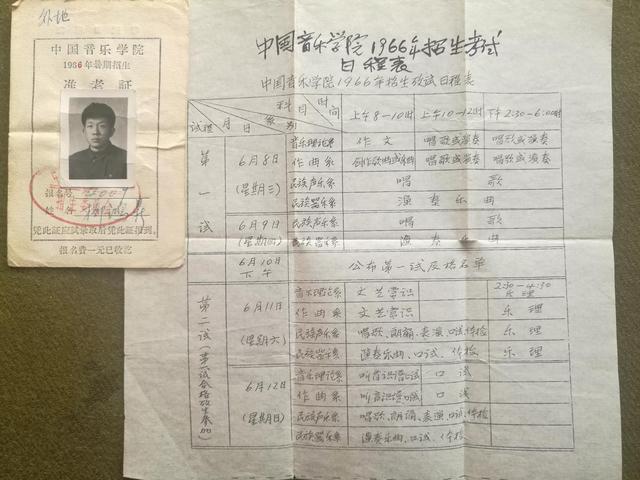 外地
中国音乐学院
1966年暑期招生
准考证
报名号
姓名
凭此证应试录取后凭此证报到.
报名费一元已收讫
中国音乐学院1966年招生考试
日程表
中国音乐学院1966年招生考试日程表
试程 月日 科目 时间 系别 上午8-10时 上午10-12时 下午2:30-6:00时
第一试 6月8日(星期三) 音乐理论系 作文 唱歌或演奏 唱歌或演奏
作曲系 创作歌曲或乐曲 唱歌或演奏 唱歌或演奏
民族声乐系 唱歌
民族器乐系 演奏乐曲
6月9日(星期四) 民族声乐系 唱歌
民族器乐系 演奏乐曲
6月10日下午 公布第一试及格名单
第二试(第一试合格考生参加) 6月11日(星期六) 音乐理论系 文艺常识 2:30-4:30 乐理
作曲系 文艺常识 乐理
民族声乐系 唱歌、朗诵、表演、口试体检 乐理
民族器乐系 演奏乐曲、口试、体检 乐理
6月12日(星期日) 音乐理论系 听音识谱 口试
作曲系 听音识谱 口试
民族声乐系 唱歌、朗诵、表演、口试体检
民族器乐系 演奏乐曲、口试、体检